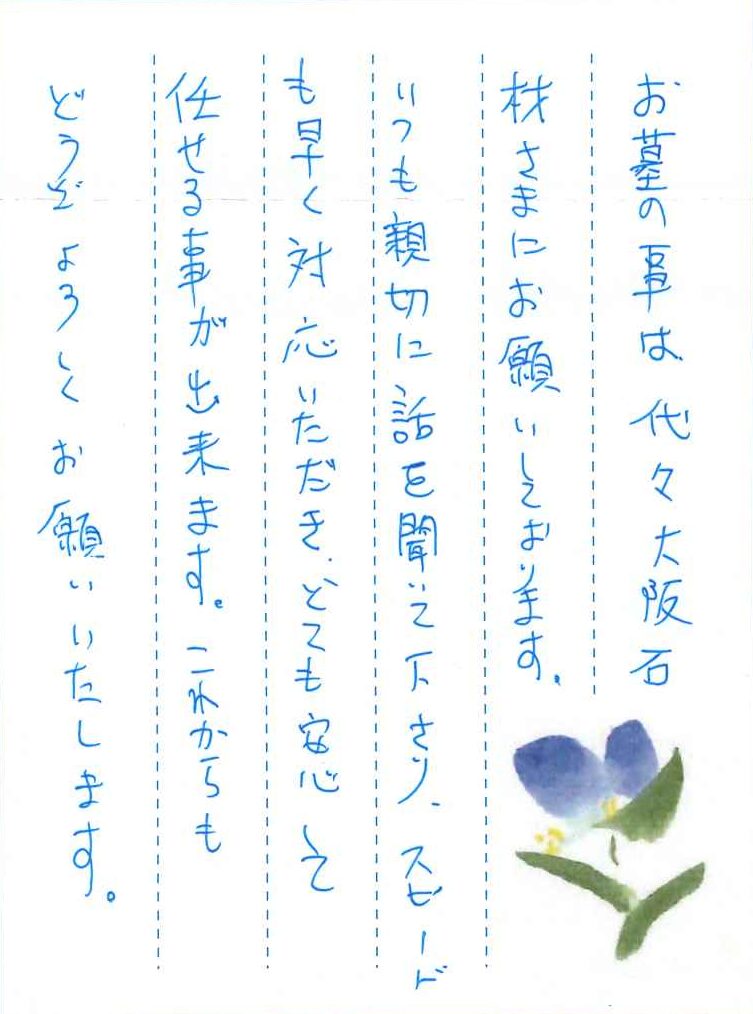 お墓の事は代々大阪石
材さまにお願いしております。
いつも親切に話を聞いて下さり、スピード
も早く対応いただき、とても安心して
任せる事が出来ます。これからも
どうぞよろしくお願いいたします。